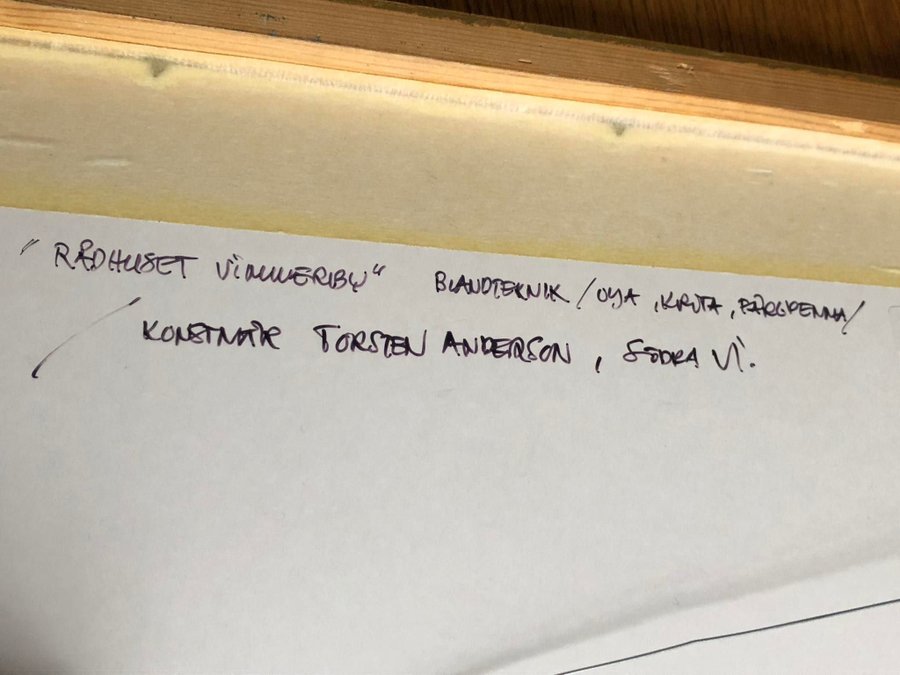 "RÅDHUSET VIMMERBY" BLANDTEKNIK / OLJA, KRITA, FÄRGPENNA /
/ KONSTNÄR TORSTEN ANDERSON, SÖDRA VI.